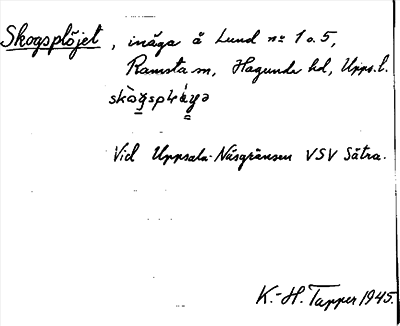 Skogsplöjet, inäga å Lund nr 1 o. 5,
Ramsta sn, Hagunda hd, Upps. l.
Vid Uppsala-Näsgränsen VSV Sätra.
K.-H. Tapper 1945.